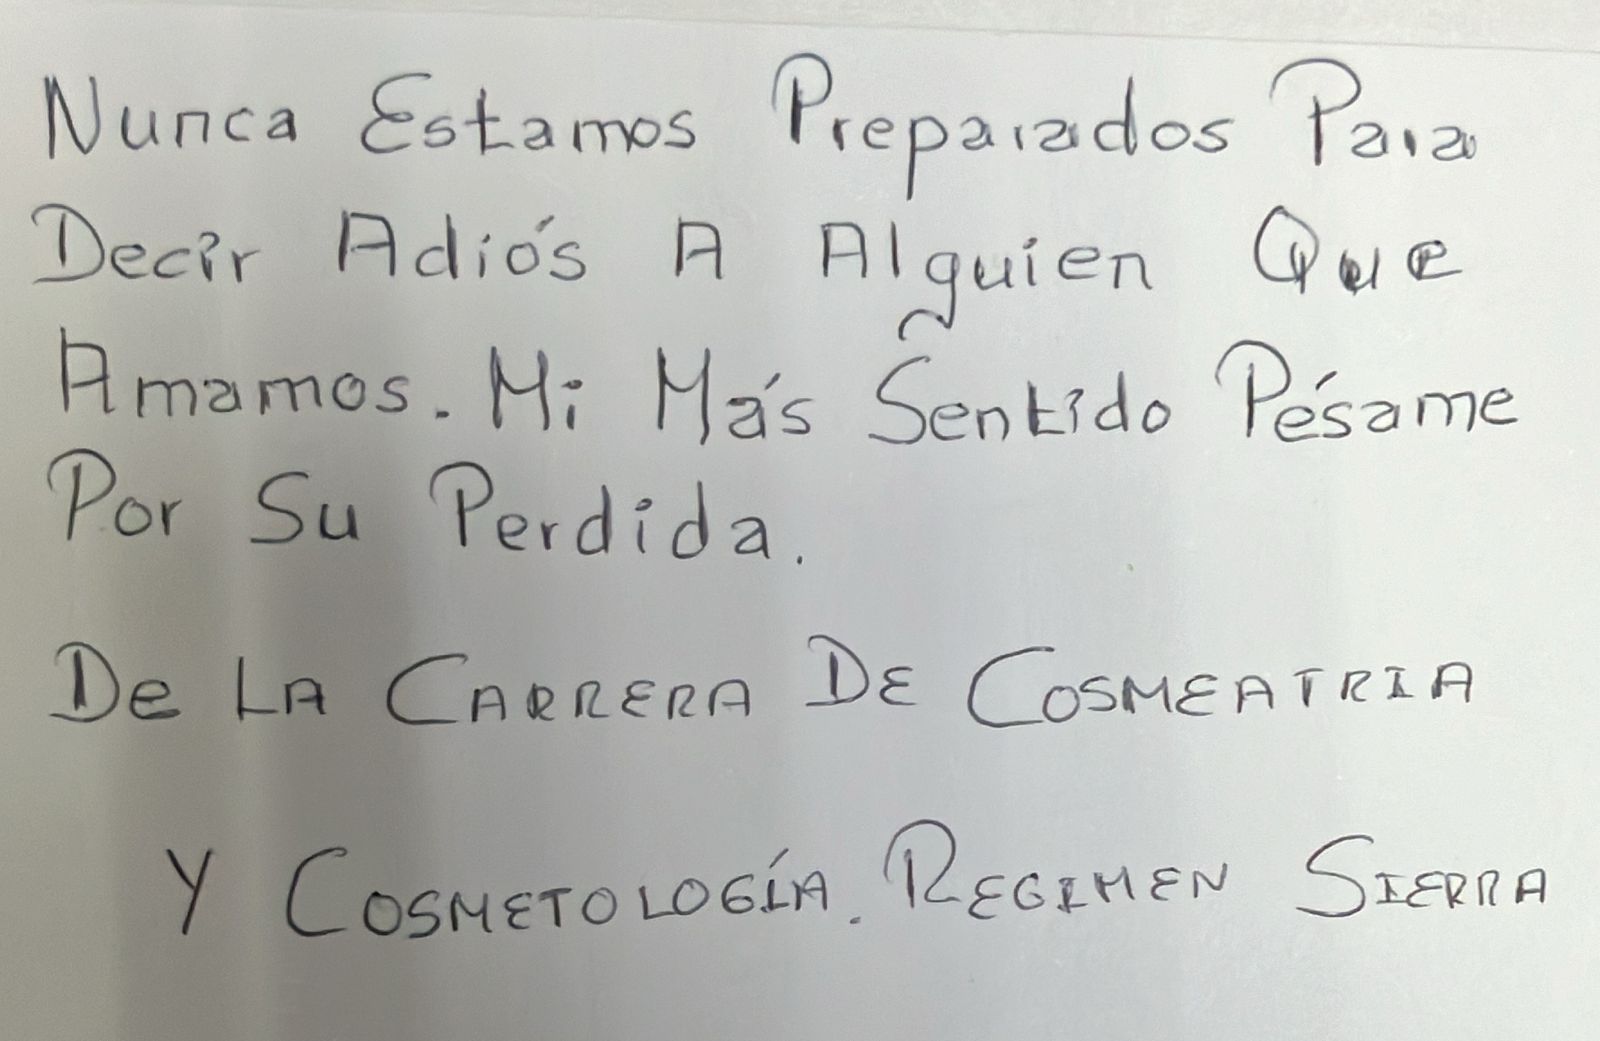 Nunca Estamos Preparados Para
Decir Adiós A Alguien Que
Amamos. Mi Más Sentido Pésame
Por Su Perdida.
De LA CARRERA DE COSMEATRIA
Y COSMETOLOGÍA. REGIMEN SIERRA